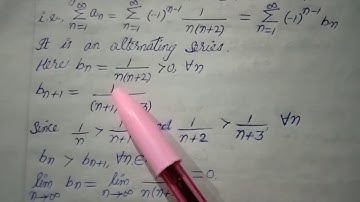 i.e. ∑_{n=1}^{∞} aₙ = ∑_{n=1}^{∞} (-1)^{n-1} 1/n(n+2) = ∑_{n=1}^{∞} (-1)^{n-1} bₙ
It is an alternating series.
Here bₙ = 1/n(n+2) > 0, ∀n
bₙ₊₁ = 1/(n+1 3)
Since 1/n > 1/n+1 and 1/n+2 > 1/n+3, ∀n
bₙ > bₙ₊₁, ∀n∈
lim_{n→∞} bₙ = lim_{n→∞} 1/n(n = 0.